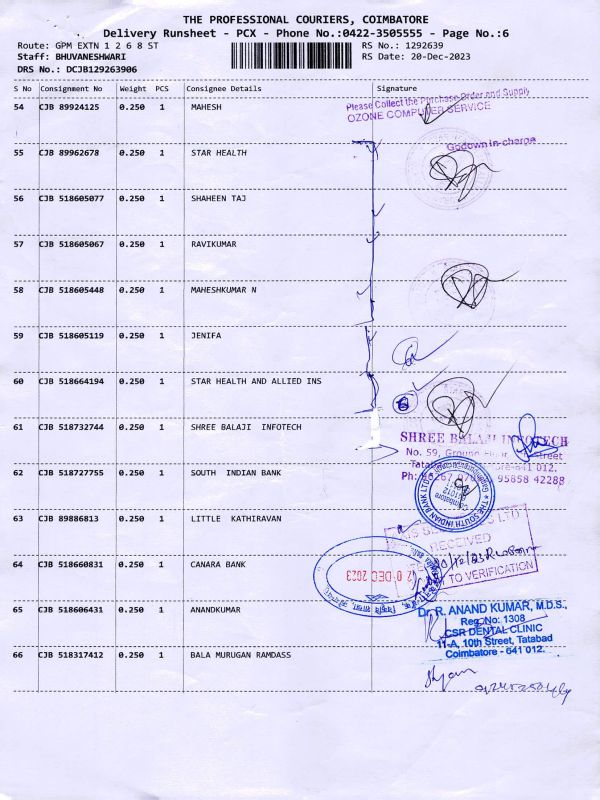 THE PROFESSIONAL COURIERS, COIMBATORE
Delivery Runsheet - PCX - Phone No.:0422-3505555 - Page No.:6
Route: GPM EXTN 1 2 6 8 ST RS No.: 1292639
Staff: BHUVANESHWARI RS Date: 20-Dec-2023
DRS No.: DCJB129263906
S No Consignment No Weight PCS Consignee Details Signature
54 CJB 89924125 0.250 1 MAHESH
Please Collect the Purchase Order and Supply
OZONE COMPUTER SERVICE
Godown In-charge
55 CJB 89962678 0.250 1 STAR HEALTH
56 CJB 518605077 0.250 1 SHAHEEN TAJ
57 CJB 518605067 0.250 1 RAVIKUMAR
58 CJB 518605448 0.250 1 MAHESHKUMAR N
59 CJB 518605119 0.250 1 JENIFA
60 CJB 518664194 0.250 1 STAR HEALTH AND ALLIED INS
61 CJB 518732744 0.250 1 SHREE BALAJI INFOTECH
SHREE BALAJI INFOTECH
No. 59, Ground Floor, Street
641 012.
95858 42288
62 CJB 518727755 0.250 1 SOUTH INDIAN BANK
THE SOUTH INDIAN BANK LTD
Coimbatore
641012
63 CJB 89886813 0.250 1 LITTLE KATHIRAVAN
RECEIVED
TO VERIFICATION
64 CJB 518660831 0.250 1 CANARA BANK
20 DEC 2023
65 CJB 518606431 0.250 1 ANANDKUMAR
Dr. R. ANAND KUMAR, M.D.S.,
Reg. No: 1308
CSR DENTAL CLINIC
11-A, 10th Street, Tatabad
Coimbatore - 641 012.
66 CJB 518317412 0.250 1 BALA MURUGAN RAMDASS